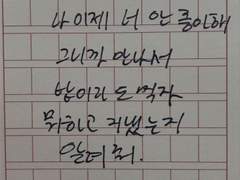 나 이제 너 안 좋아해
그니까 만나서
밥이라도 먹자
뭐하고 지냈는지
알려줘.